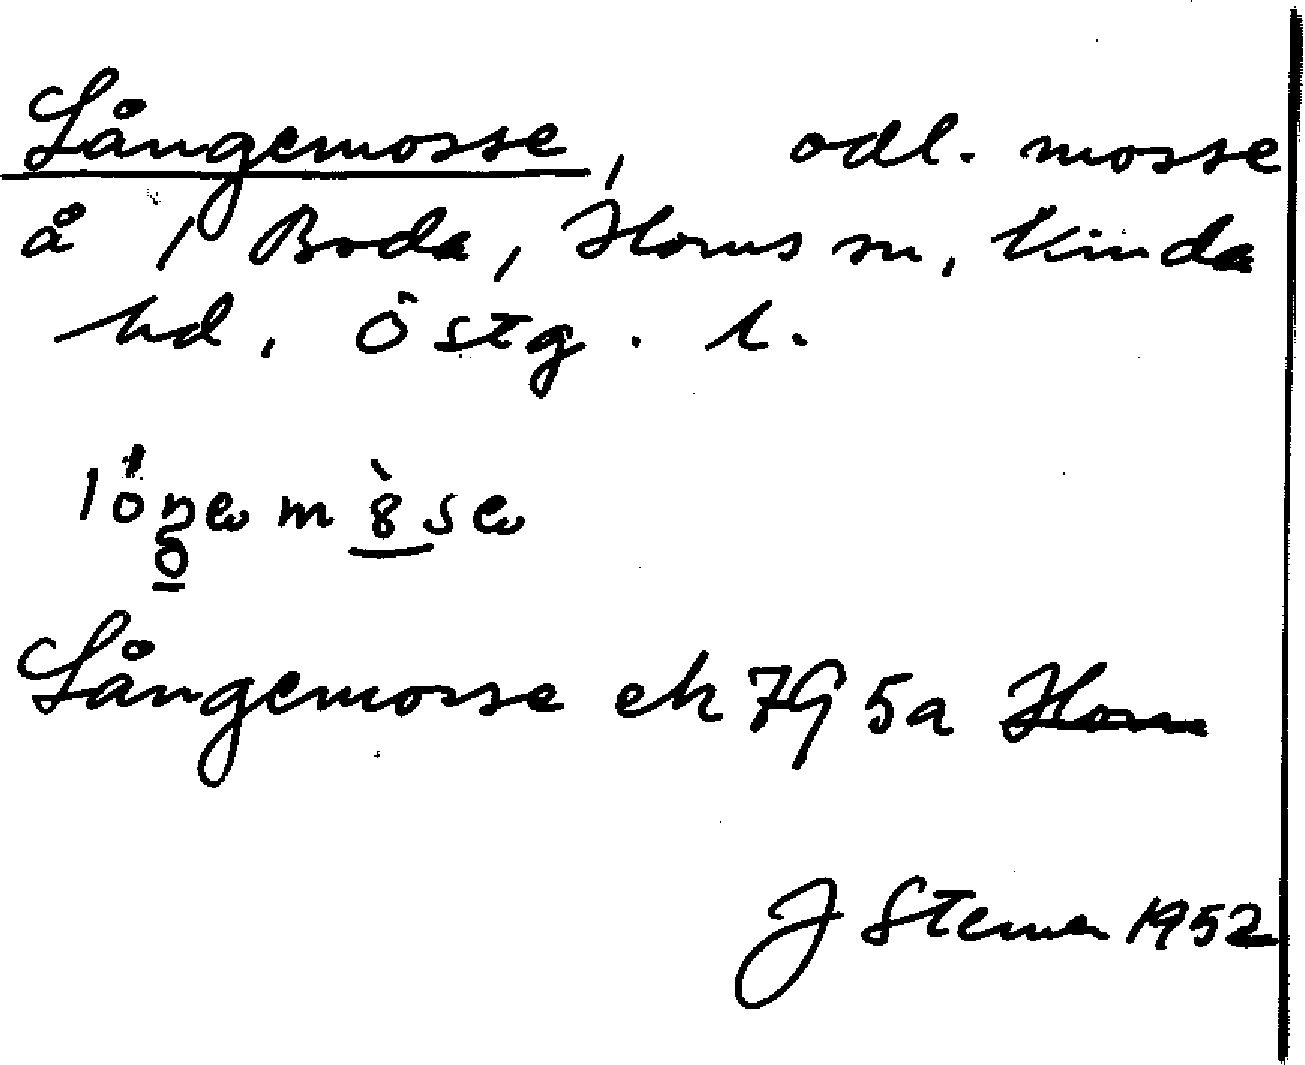 Långemosse, odl. mosse
å 1 Boda, Horns sn, Kinda
hd, Östg. l.
Långemosse ek 7G 5a Horn
J Stener 1952